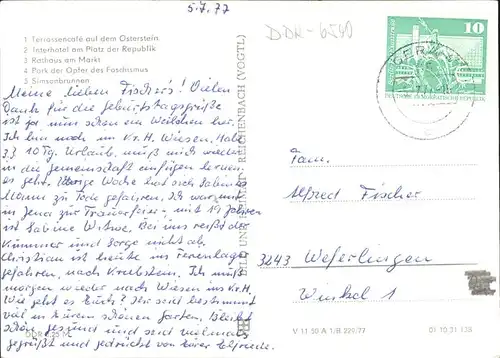 5.7.77
DDR-6540
1 Terrassencafé auf dem Osterstein
2 Interhotel am Platz der Republik
3 Rathaus am Markt
4 Park der Opfer des Faschismus
5 Simsonbrunnen
Meine lieben Fischer's! Vielen
Dank für die Geburtstagsgrüße
ist ja nun schon ein Weilchen her.
Ich bin noch im Kr. H. Wiesen. Habe
z.Z 10 Tg. Urlaub, muß mich wieder
in die Gemeinschaft einfügen lernen
es geht. Vorige Woche hat sich Sabines
Mann zu Tode gefahren. Ich war mit
in Jena zur Trauerfeier - mit 19 Jahren
ist Sabine Witwe. Bei uns reißt der
Kummer und Sorge nicht ab.
Christian ist heute ins Ferienlager
gefahren, nach Kriebstein. Ich muß
morgen wieder nach Wiesen ins Kr.H.
Wie geht es Euch? Ihr seid bestimmt
viel in Eurem schönen Garten. Bleibt
schön gesund und seid vielmals
gegrüßt und gedrückt von Eurer Elfriede.
DDR 0,25 M
BILD UND HEIMAT REICHENBACH (VOGTL)
10
DEUTSCHE DEMOKRATISCHE REPUBLIK
GERA
Fam.
Alfred Fischer
3243 Weferlingen
Winkel 1
V 11 50 A 1/B 229/77
01 10 31 128